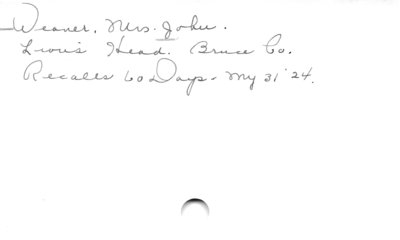 Weaver, Mrs. John.
Lion's Head. Bruce Co.
Recalls 60 Days - My 31 '24.